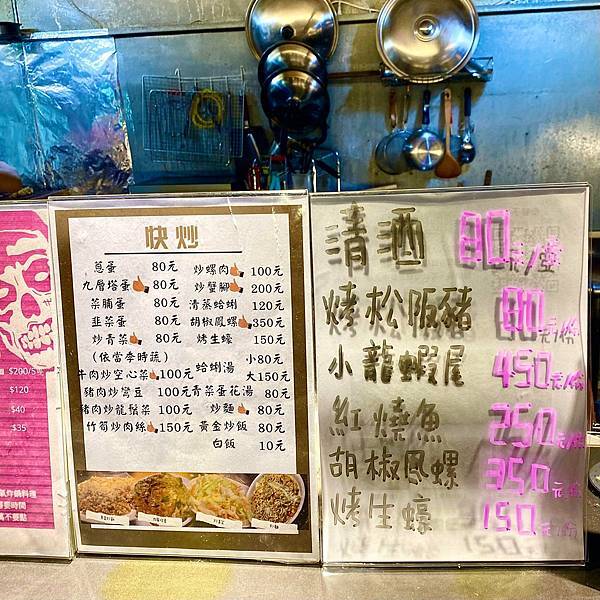 $200/5
$120
$40
$35
氣炸鍋料理
要時間
萬不要點
快炒
蔥蛋 80元
九層塔蛋 80元
菜脯蛋 80元
韭菜蛋 80元
炒青菜 80元
(依當季時蔬)
牛肉炒空心菜 100元
豬肉炒豌豆 100元
豬肉炒龍鬚菜 100元
竹筍炒肉絲 150元
炒螺肉 100元
炒蟹腳 200元
清蒸蛤蜊 120元
胡椒鳳螺 350元
烤生蠔 150元
蛤蜊湯 小80元
大150元
青菜蛋花湯 80元
炒麵 80元
黃金炒飯 80元
白飯 10元
清酒 80元/壺
烤松阪豬 180元/份
小龍蝦尾 450元/份
紅燒魚 250元/份
胡椒鳳螺 350元/份
烤生蠔 150元/份